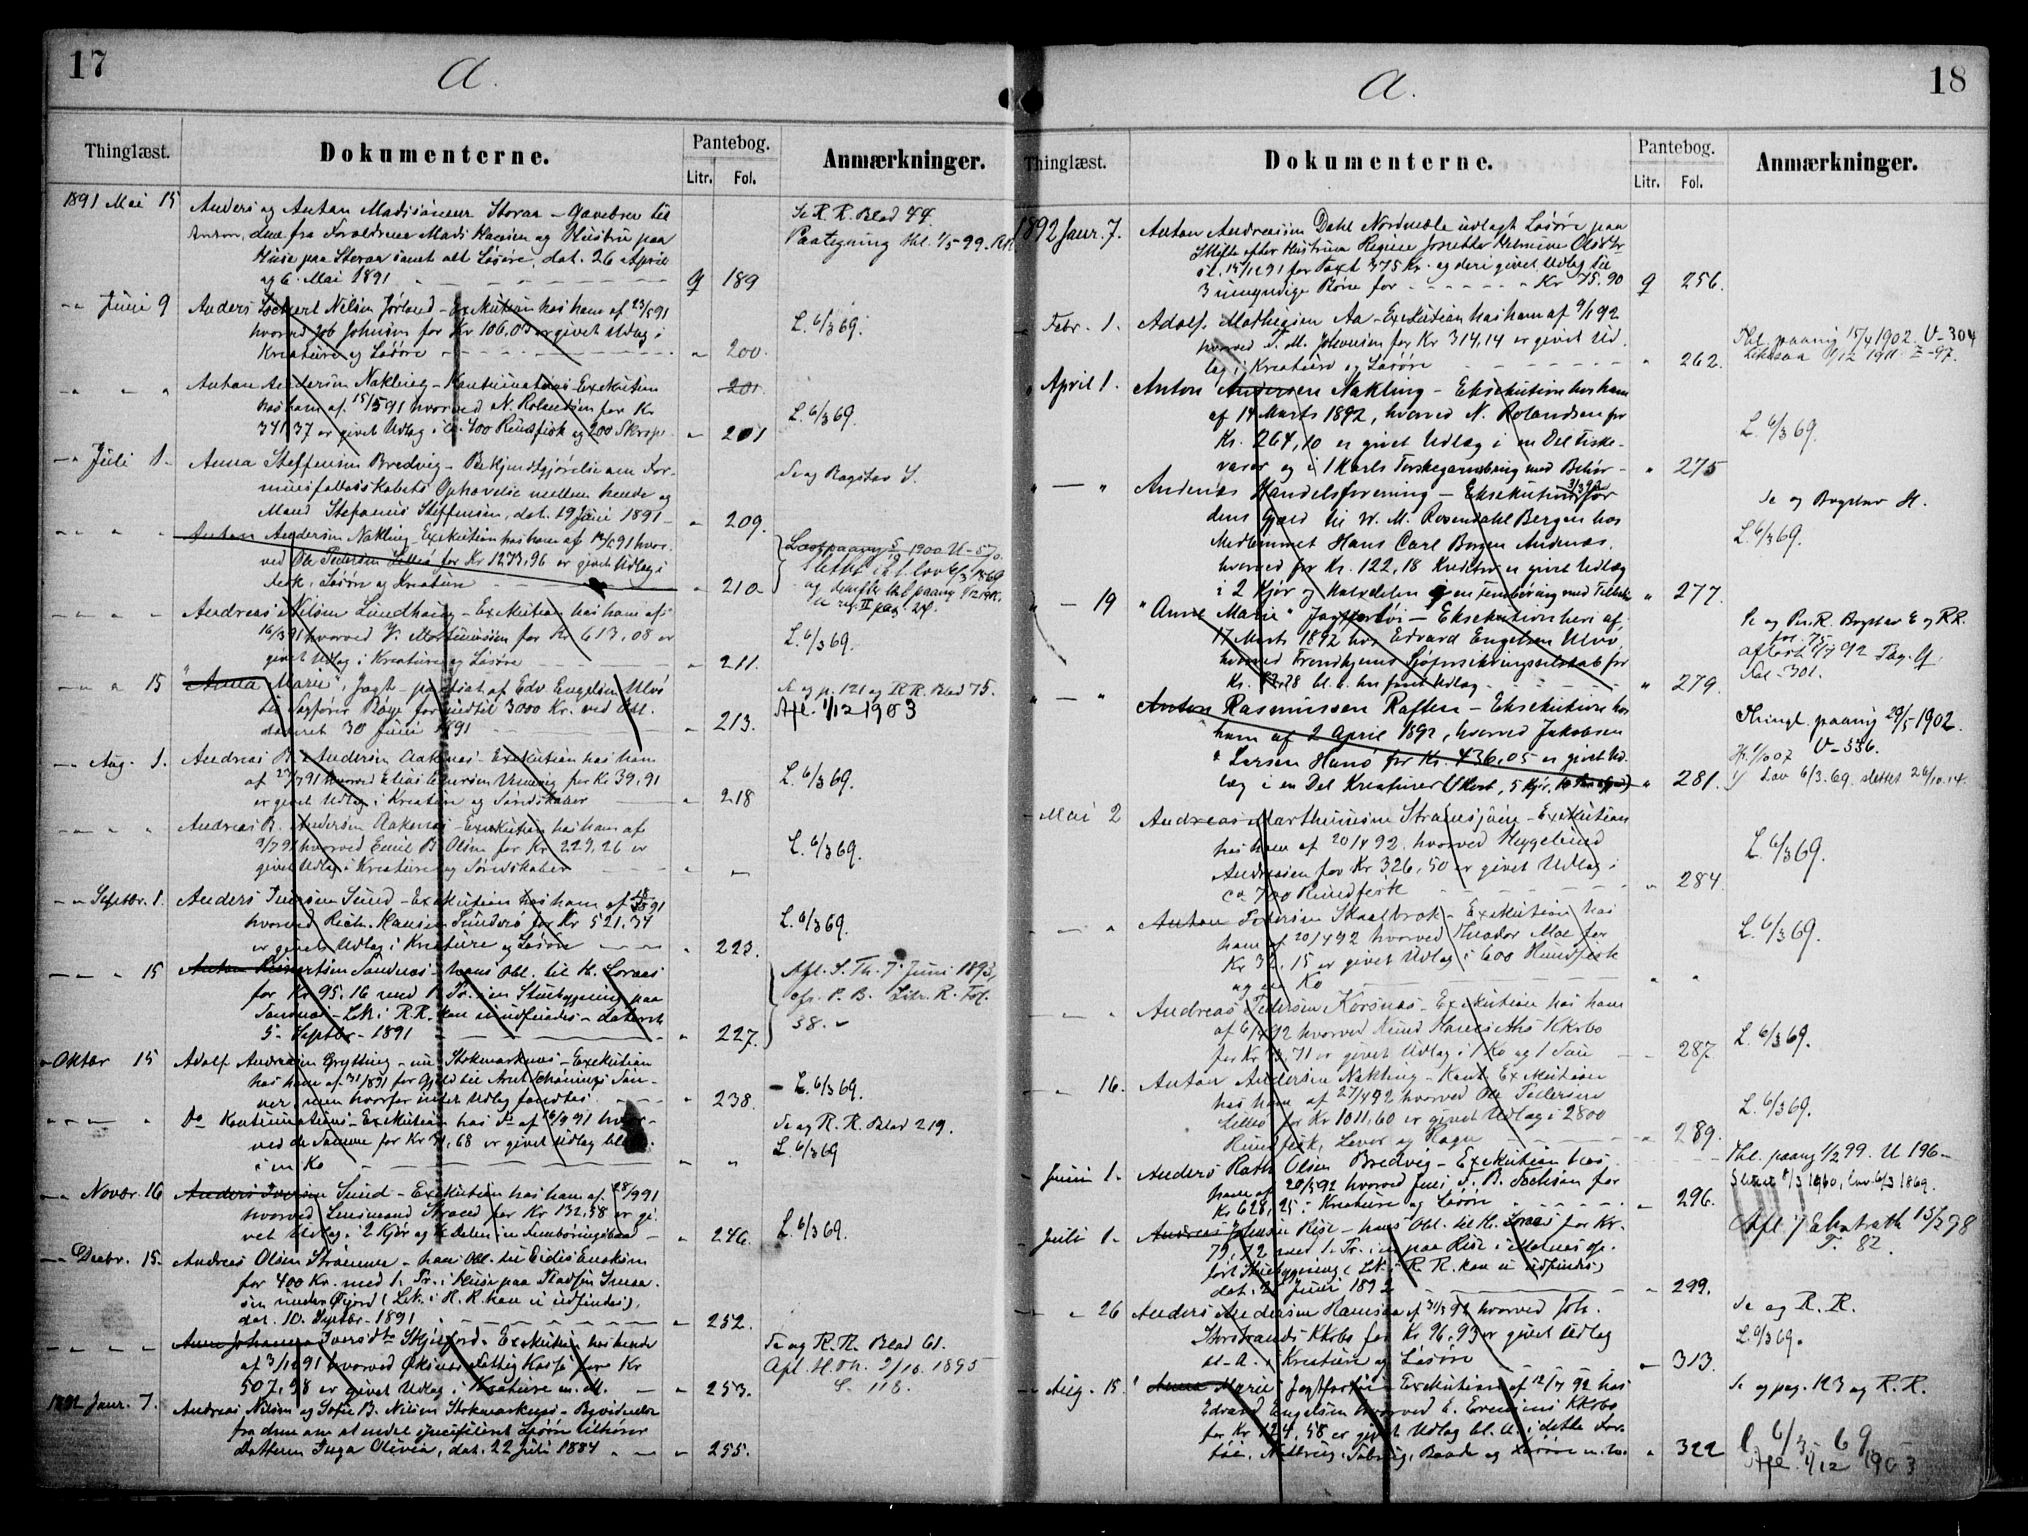 17
A.
Thinglæst.
Dokumenterne.
Pantebog.
Litr.
Fol.
Anmærkninger.
1891 Mai 15
Anders og Anton Madisønner Storaa - Gavebrev til
Anton, dem fra Forældrene Mads Hansen og Hustru paa
Huse paa Storaa samt alt Løsøre, dat. 26 April
og 6. Mai 1891
q 189
Se R. R. Blad 44
Paategning thl. 1/5 99. RR
-"- Juni 9
Anders Nilsen - Exekution hos ham af 23/5 91
hvorved Job Johnsen for Kr 106,03 er givet Udlag i
Kreature og Løsøre
" 200.
L. 6/3 69.
" " "
Anton Andersen Nakling - Kontinuations-Exekution
hos ham af 15/5 91 hvorved N. Rolandsen for Kr
341,37 er givet Udlag i ca. 400 Rundfisk og 200 Skrep
201.
" 201
L. 6/3 69.
-"- Juli 1.
Anna Steffensen Bredvig - Bekjendtgjørelse om For-
muesfællesskabets Ophævelse mellem hende og
Mand Stefanus Steffensen, dat. 19 Juni 1891
" 209.
Se og Bogstav S.
" " "
Anton Andersen Nakling - Exekution hos ham af 14/6 91 hvor-
ved Ole Pedersen Lilleø for Kr 1273,96 er givet Udlag i
Fisk, Løsøre og Kreature
" 210
slettet i h. t. lov 6/3 1869
" " "
Andreas Nilsen Lundhaug - Exekution hos ham af
16/3 91 hvorved V. Mortensen for Kr 613,08 er
givet Udlag i Kreature og Løsøre
" 211.
L. 6/3 69.
-"- " 15
"Anna Marie", Jagt - pantsat af Edv. Engelsen Ulvø
til Sagfører Bøge for indtil 3000 Kr. ved Obl.
dateret 30 Juni 1891
" 213.
Se og p. 121 og RR. Blad 75.
Afl. 1/12 1903
-"- Aug. 1.
Andreas B. Andersen Aaknes - Exekution hos ham
af 27/7 91 hvorved Elias Einersen for Kr 39,91
er givet Udlag i Kreature og Jordskaber
" 218
L. 6/3 69.
" " "
Andreas B. Andersen Aaknes - Exekution hos ham af
3/7 91 hvorved Emil B. Olsen for Kr 229,26 er
givet Udlag i Kreature og Jordskaber
" "
L. 6/3 69.
-"- Septbr. 1.
Anders Iversen Sund - Exekution hos ham af
hvorved Rich. Hansen Sunderø for Kr 521,34
er givet Udlag i Kreature og Løsøre
" 223.
L. 6/3 69.
-"- " 15
Anton Sandnes - hans Obl. til K. Loraas
for Kr 95,16 med 1. Pr. i en Stuebygning paa
Sandnes - Lok. i R.R. kan ei udfindes - dateret
5. Septbr. 1891
" 227.
Afl. S. Th. 7. Juni 1893,
cfr. P. B. Litr. R. Fol.
38.
-"- Oktbr 15
Adolf Andreasen Grytting - nu Stokmarknes - Exekution
hos ham af 31/8 91 for Gjæld til
men hvorfor intet Udlag fandtes
" 238.
L. 6/3 69.
" " "
Do Kontinuations-Exekution hos Do af 26/9 91 hvor-
ved de Samme for Kr 31,68 er givet Udlag bl.
i en Ko
" "
Se og R. R. Blad 219.
L. 6/3 69
-"- Novbr. 16
Anders Iversen Sund - Exekution hos ham af 28/9 91
hvorved Lensmand for Kr 132,58 er gi-
vet Udlag i 2 Kjør og ½ Delen i en Fembøringsbaad
" 246.
L. 6/3 69.
-"- Decbr. 15.
Andreas Olsen Strømme - hans Obl. til Eidis Enoksen
for 400 Kr. med 1. Pr. i Huse paa
under Øfjord (Lok. i R. R. kan ei udfindes),
dat. 10. Septbr. 1891
" 252.
" " "
Ane Johanna Iversdtr. Skjelfjord - Exekution hos hende
af 3/12 91 hvorved Øksnes Fattig Kasse for Kr
507,98 er givet Udlag i Kreature m. M.
" 253.
Se og R. R. Blad 61.
Afl. H. Th. 2/10. 1895
S. 118.
1892 Janr. 7.
Andreas Nilsen og Sofie B. Nilsen Stokmarknes - Bevidnelse
fra dem om at endel specificeret Løsøre tilhører
Datteren Inga Olivia, dat. 22 Juli 1884
" 255.
18
A.
Thinglæst.
Dokumenterne.
Pantebog.
Litr.
Fol.
Anmærkninger.
1892 Janr. 7.
Anton Andreasen Dahl Nordmæle udlagt Løsøre paa
Skifte efter Hustrua Regine Josette Helmine Olsdtr
sl. 15/12 91 for Taxt 375 Kr. og deri givet Udlag til
3 umyndige Børn for Kr 75.90
q 256.
Febr. 1.
Adolf Mathisen Aa - Exekution hos ham af 9/1 92
hvorved J. M. Johnsen for Kr 314,14 er givet Ud-
lag i Kreature og Løsøre
" 262.
Thl. paany 15/4 1902. V-304
Likesaa 1/12 1911. Z-97.
" April 1.
Anton Andersen Nakling - Eksekution hos ham
af 14 Marts 1892, hvorved N. Rolandsen for
Kr. 264,10 er givet Udlæg i en Del Fiske-
varer og i 1 Karls Torskegarnsbrug med Behør
" 275
L. 6/3 69.
" - "
Andenæs Handelsforening - Eksekution 31/3 92 for
dens Gjæld til W. M. Rosendahl Bergen hos
Medlemmet Hans Carl Borgen Andenæs,
hvorved for Kr. 122,18 Kreditor er givet Udlæg
i 2 Kjør og Halvdelen i en Fembøring med Tilbehør
" 277.
Se og Bogstav H.
L. 6/3 69.
" - 19
"Anne Marie" Jagtfartøi - Eksekution heri af
17 Marts 1892 hos Edvard Engelsen Ulvø,
hvorved Trondhjems Sjøforsikringsselskab for
Kr. 82.28 bl. a. her faaet Udlæg
" 279.
Se og Pers.R. Bogstav E og RR.
fol. 75.
aflæst 2/7 92 Pag. Q
Fol. 301.
" - "
Anton Rasmussen Raften - Eksekution hos
ham af 2 April 1892, hvorved Jakobsen
& Larsen Hanø for Kr. 436,05 er givet Ud-
læg i en Del Kreaturer (1 Hest, 5 Kjør, 10
" 281.
Thingl. paany 29/5 1902.
V-336.
if Lov 6/3. 69. slettet 26/10. 14.
- Mai 2
Andreas Marthinusen Straumsjøen - Exekution
hos ham af 20/4 92 hvorved Heggelund
Andreasen for Kr 326,50 er givet Udlag i
ca 700 Rundfisk
" 284.
L. 6/3 69.
- - "
Anton Pedersen Skaalbrok - Exekution hos
ham af 20/4 92 hvorved Theodor Moe for
Kr 32,15 er givet Udlag i 600 Rundfisk
og en Ko
" "
L. 6/3 69.
- - "
Andreas Pedersen Korsnes - Exekution hos ham
af 6/4 92 hvorved Knud Hansens Kkrbo
for Kr 13,71 er givet Udlag i 1 Ko og 1 Sau
" 287.
L. 6/3 69.
- " 16.
Anton Andersen Nakling - Kont. Exekution
hos ham af 27/4 92 hvorved Ole Pedersen
Lilleø for Kr 1011,60 er givet Udlag i 2800
Rundfisk, Lever og Rogn
" 289.
L. 6/3 69.
- Juni 1.
Anders Rath Olsen Bredvig - Exekution hos
ham af 20/5 92 hvorved J. B. for
Kr 628,25 i Kreature og Løsøre
" 296.
Thl. paany 1/2 99. U 196-
Slettet 8/3 1910, lov 6/3 1869.
- Juli 1.
Andreas Johnsen Rise - hans Obl. til K. Loraas for Kr.
79,72 med 1. Pr. i en paa Rise i Malnes op-
ført Stuebygning (Lok. i R. R. kan ei udfindes)
dat. 2. Juni 1892
" 299.
Afl. if Extrath 15/7 98
T. 82.
- " 26
Anders Andersen Hamsaa af 31/3 92 hvorved Joh.
Storstrands Kkrbo for Kr 96,93 er givet Udlag
bl. A. i Kreature og Løsøre
" 313.
Se og R. R.
L. 6/3 69.
- Aug. 15.
"Anna Marie" Jagtfartøi - Exekution af 12/7 92 hos
Edvard Engelsen hvorved E. Kkrbo
for Kr 124,58 er givet Udlag bl. A. i dette Far-
tøi, Notbrug, Baade og Løsøre m. M.
" 322
Se og pag. 123 og R. R.
L. 6/3 - 69
Afl. 1/12 1903